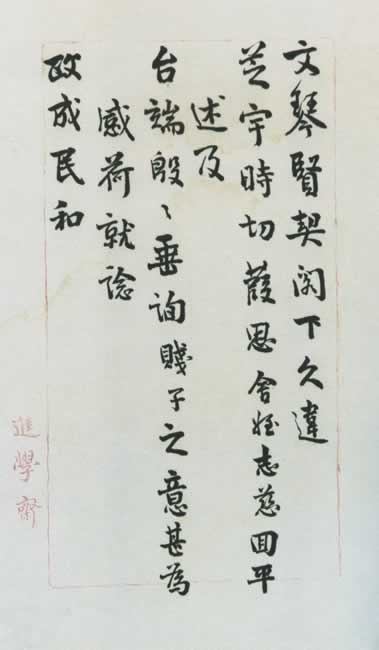 文琴賢契閣下久違
芝宇時切葭思舍姪志慈回平
述及
台端殷〻垂詢賤子之意甚為
感荷就諗
政成民和
進學齋